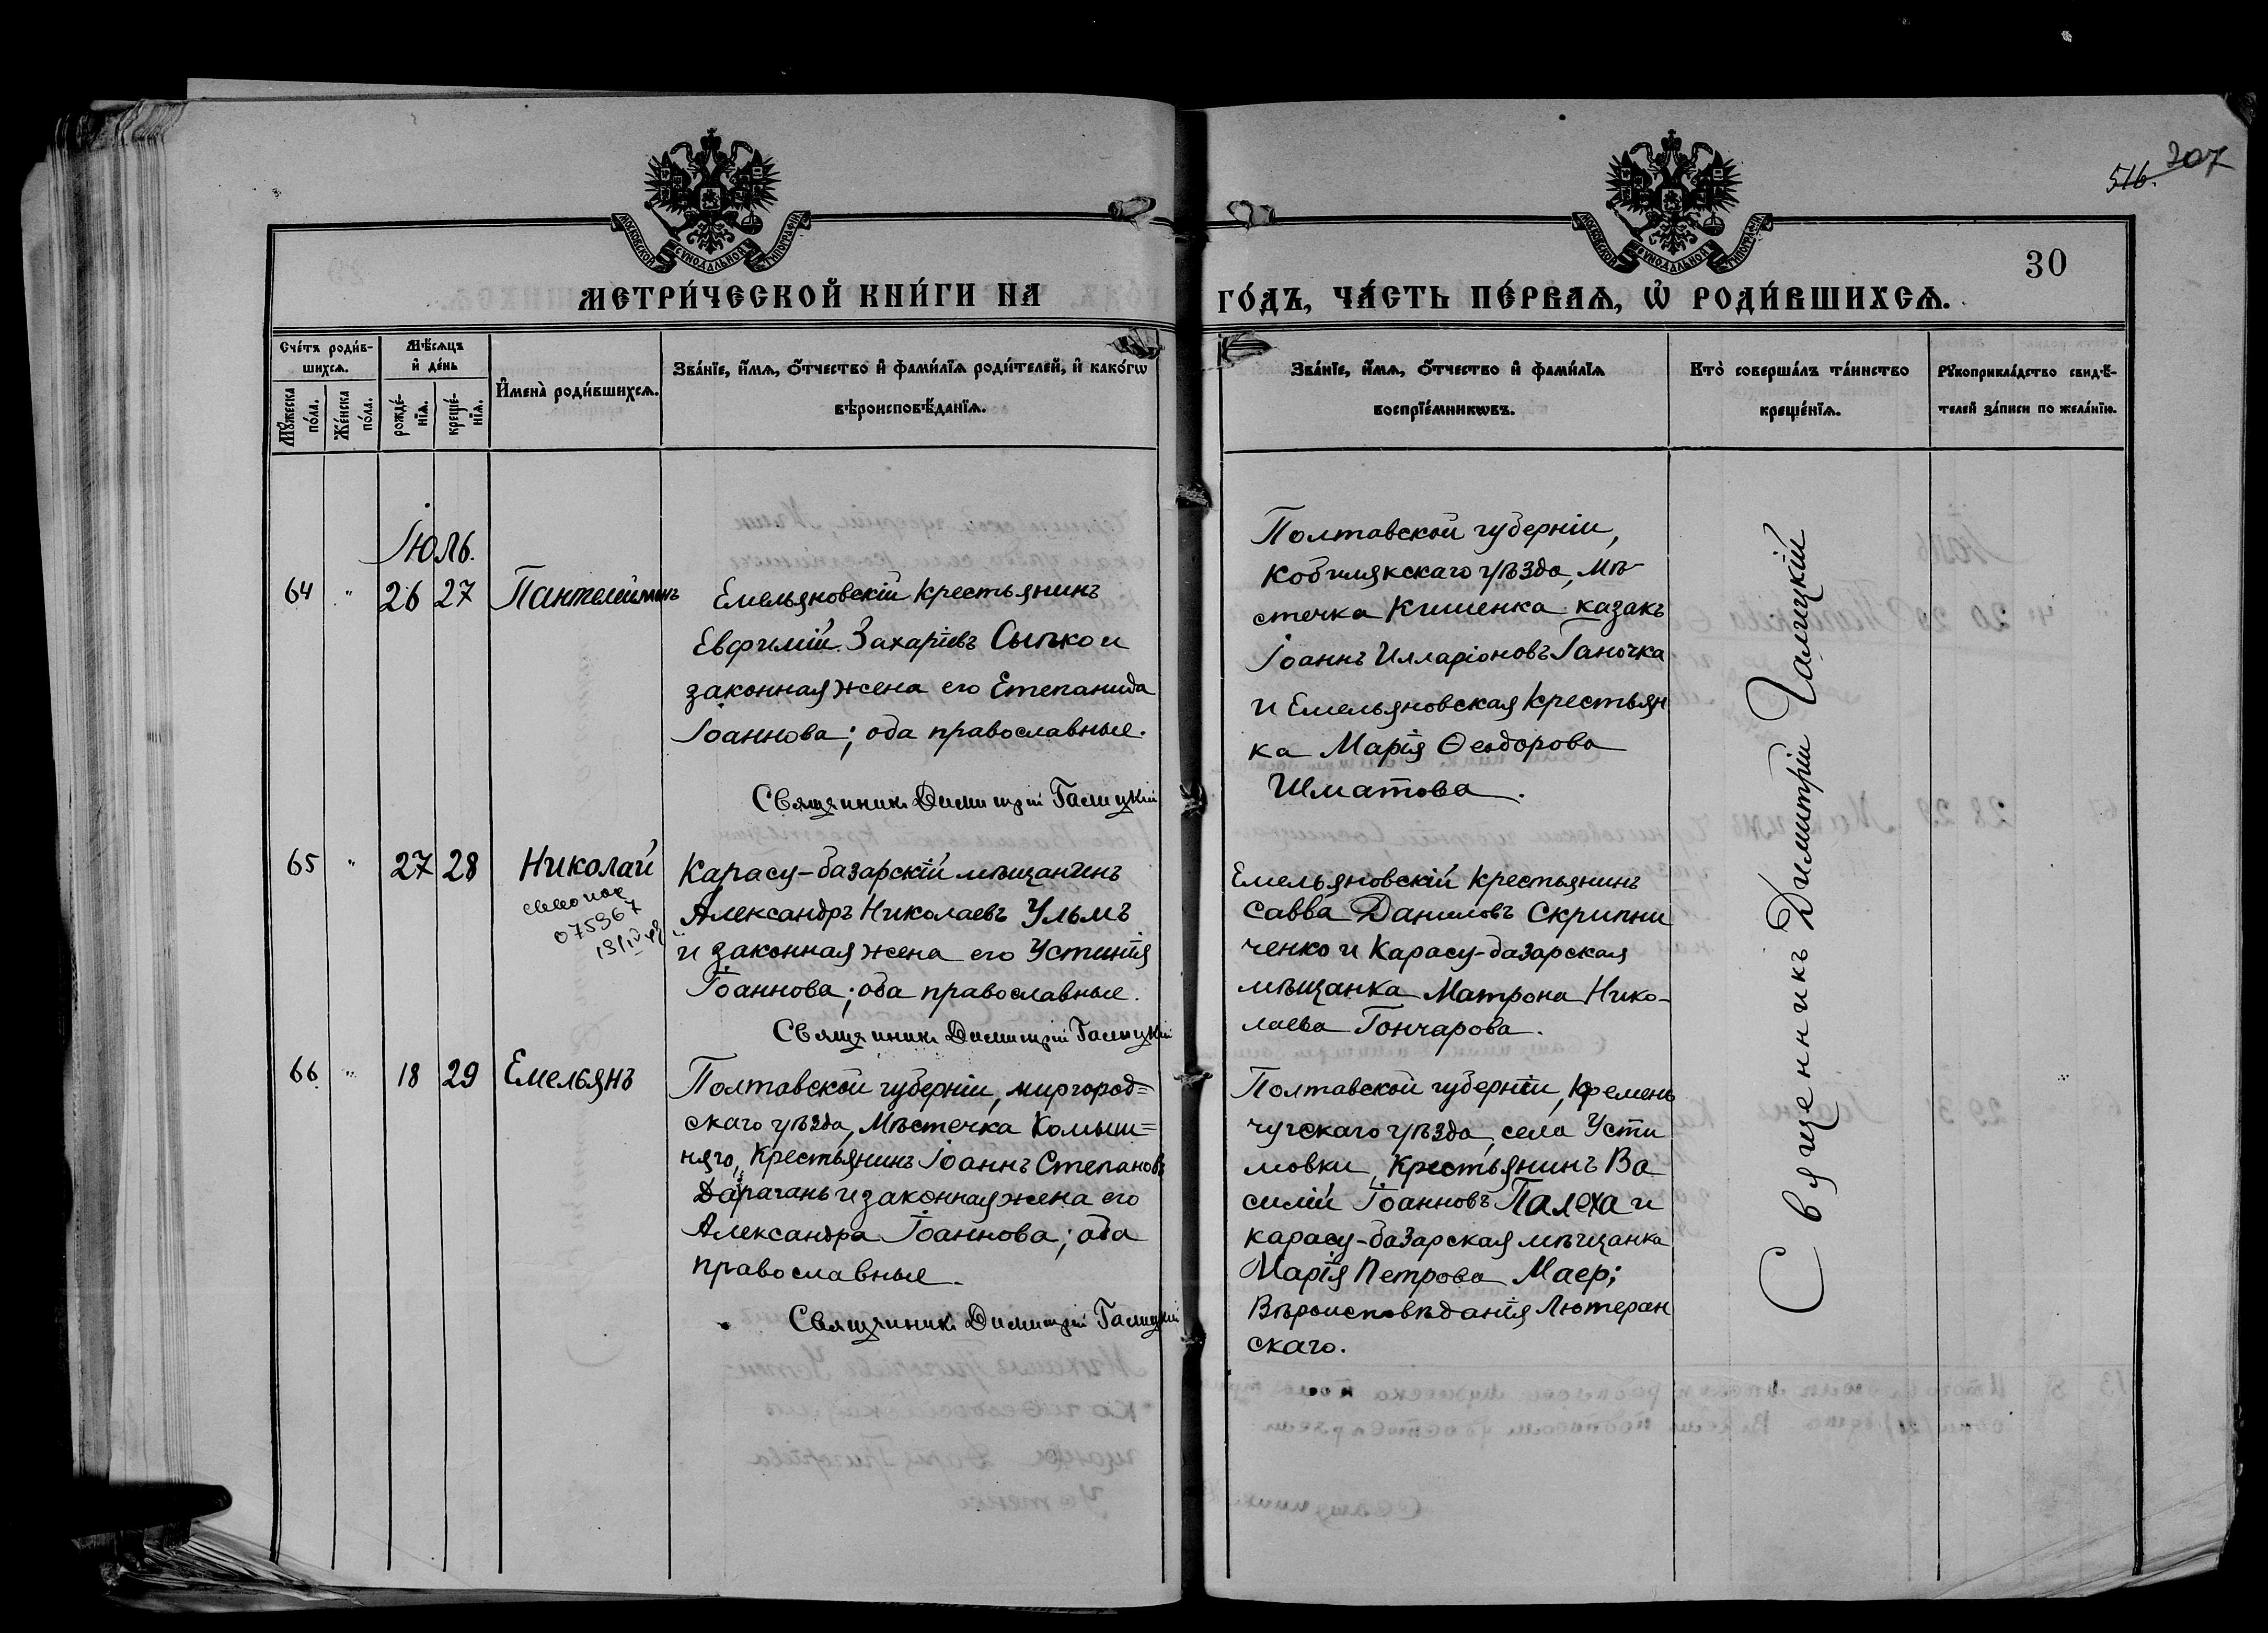 516. 207
30
МОСКОВСКОЙ СУНОДАЛЬНОЙ ТИПОГРАФІИ
МОСКОВСКОЙ СУНОДАЛЬНОЙ ТИПОГРАФІИ
МЕТРИ́ЧЕСКОЙ КНИ́ГИ НА
ГО́ДЪ, ЧА́СТЬ ПЕ́РВАѦ, Ѡ РОДИ́ВШИХСѦ.
Сче́тъ роди́в-
шихсѧ.
Мꙋ́жеска
по́ла.
Же́нска
по́ла.
Мѣ́сѧцъ
и де́нь
рожде́-
нїѧ.
креще́-
нїѧ.
Имена̀ роди́вшихсѧ.
Зва́нїе, и́мѧ, о́тчество и фами́лїѧ роди́телей, и како́гѡ
вѣроисповѣ́данїѧ.
Зва́нїе, и́мѧ, о́тчество и фами́лїѧ
воспрїе́мникѡвъ.
Кто̀ соверша́лъ та́инство
креще́нїѧ.
Рꙋкоприкла́дство свидѣ́-
телей за́писи по жела́нїю.
Іюль.
64 " 26 27 Пантелеймонъ
Емельяновскій крестьянинъ
Евфимій Захаріевъ Сыпко и
законная жена его Степанида
Іоаннова; оба православные.
Священникъ Димитрій Галицкій
Полтавской губерніи,
Кобелякскаго уѣзда, мѣ-
стечка Кишенка казакъ
Іоаннъ Илларіоновъ Ганочка
и Емельяновская крестьян
ка Марія Ѳеодорова
Шматова.
65 " 27 28 Николай
075367
Карасу-базарскій мѣщанинъ
Александръ Николаевъ Ульмъ
и законная жена его Устинія
Іоаннова; оба православные.
Священникъ Димитрій Галицкій
Емельяновскій крестьянинъ
Савва Даниловъ Скрипни
ченко и Карасу-базарская
мѣщанка Матрона Нико-
лаева Гончарова.
66 " 18 29 Емельянъ
Полтавской губерніи, миргород=
скаго уѣзда, мѣстечка Комыш=
няго, крестьянинъ Іоаннъ Степановъ
Дараганъ и законная жена его
Александра Іоаннова; оба
православные.
Священникъ Димитрій Галицкій
Полтавской губерніи, Кремен
чугскаго уѣзда, села Усти
мовки, крестьянинъ Ва
силій Іоанновъ Палеха и
карасу-базарская мѣщанка
Марія Петрова Маер;
Вѣроисповѣданія Лютеран
скаго.
Священникъ Димитрій Галицкій